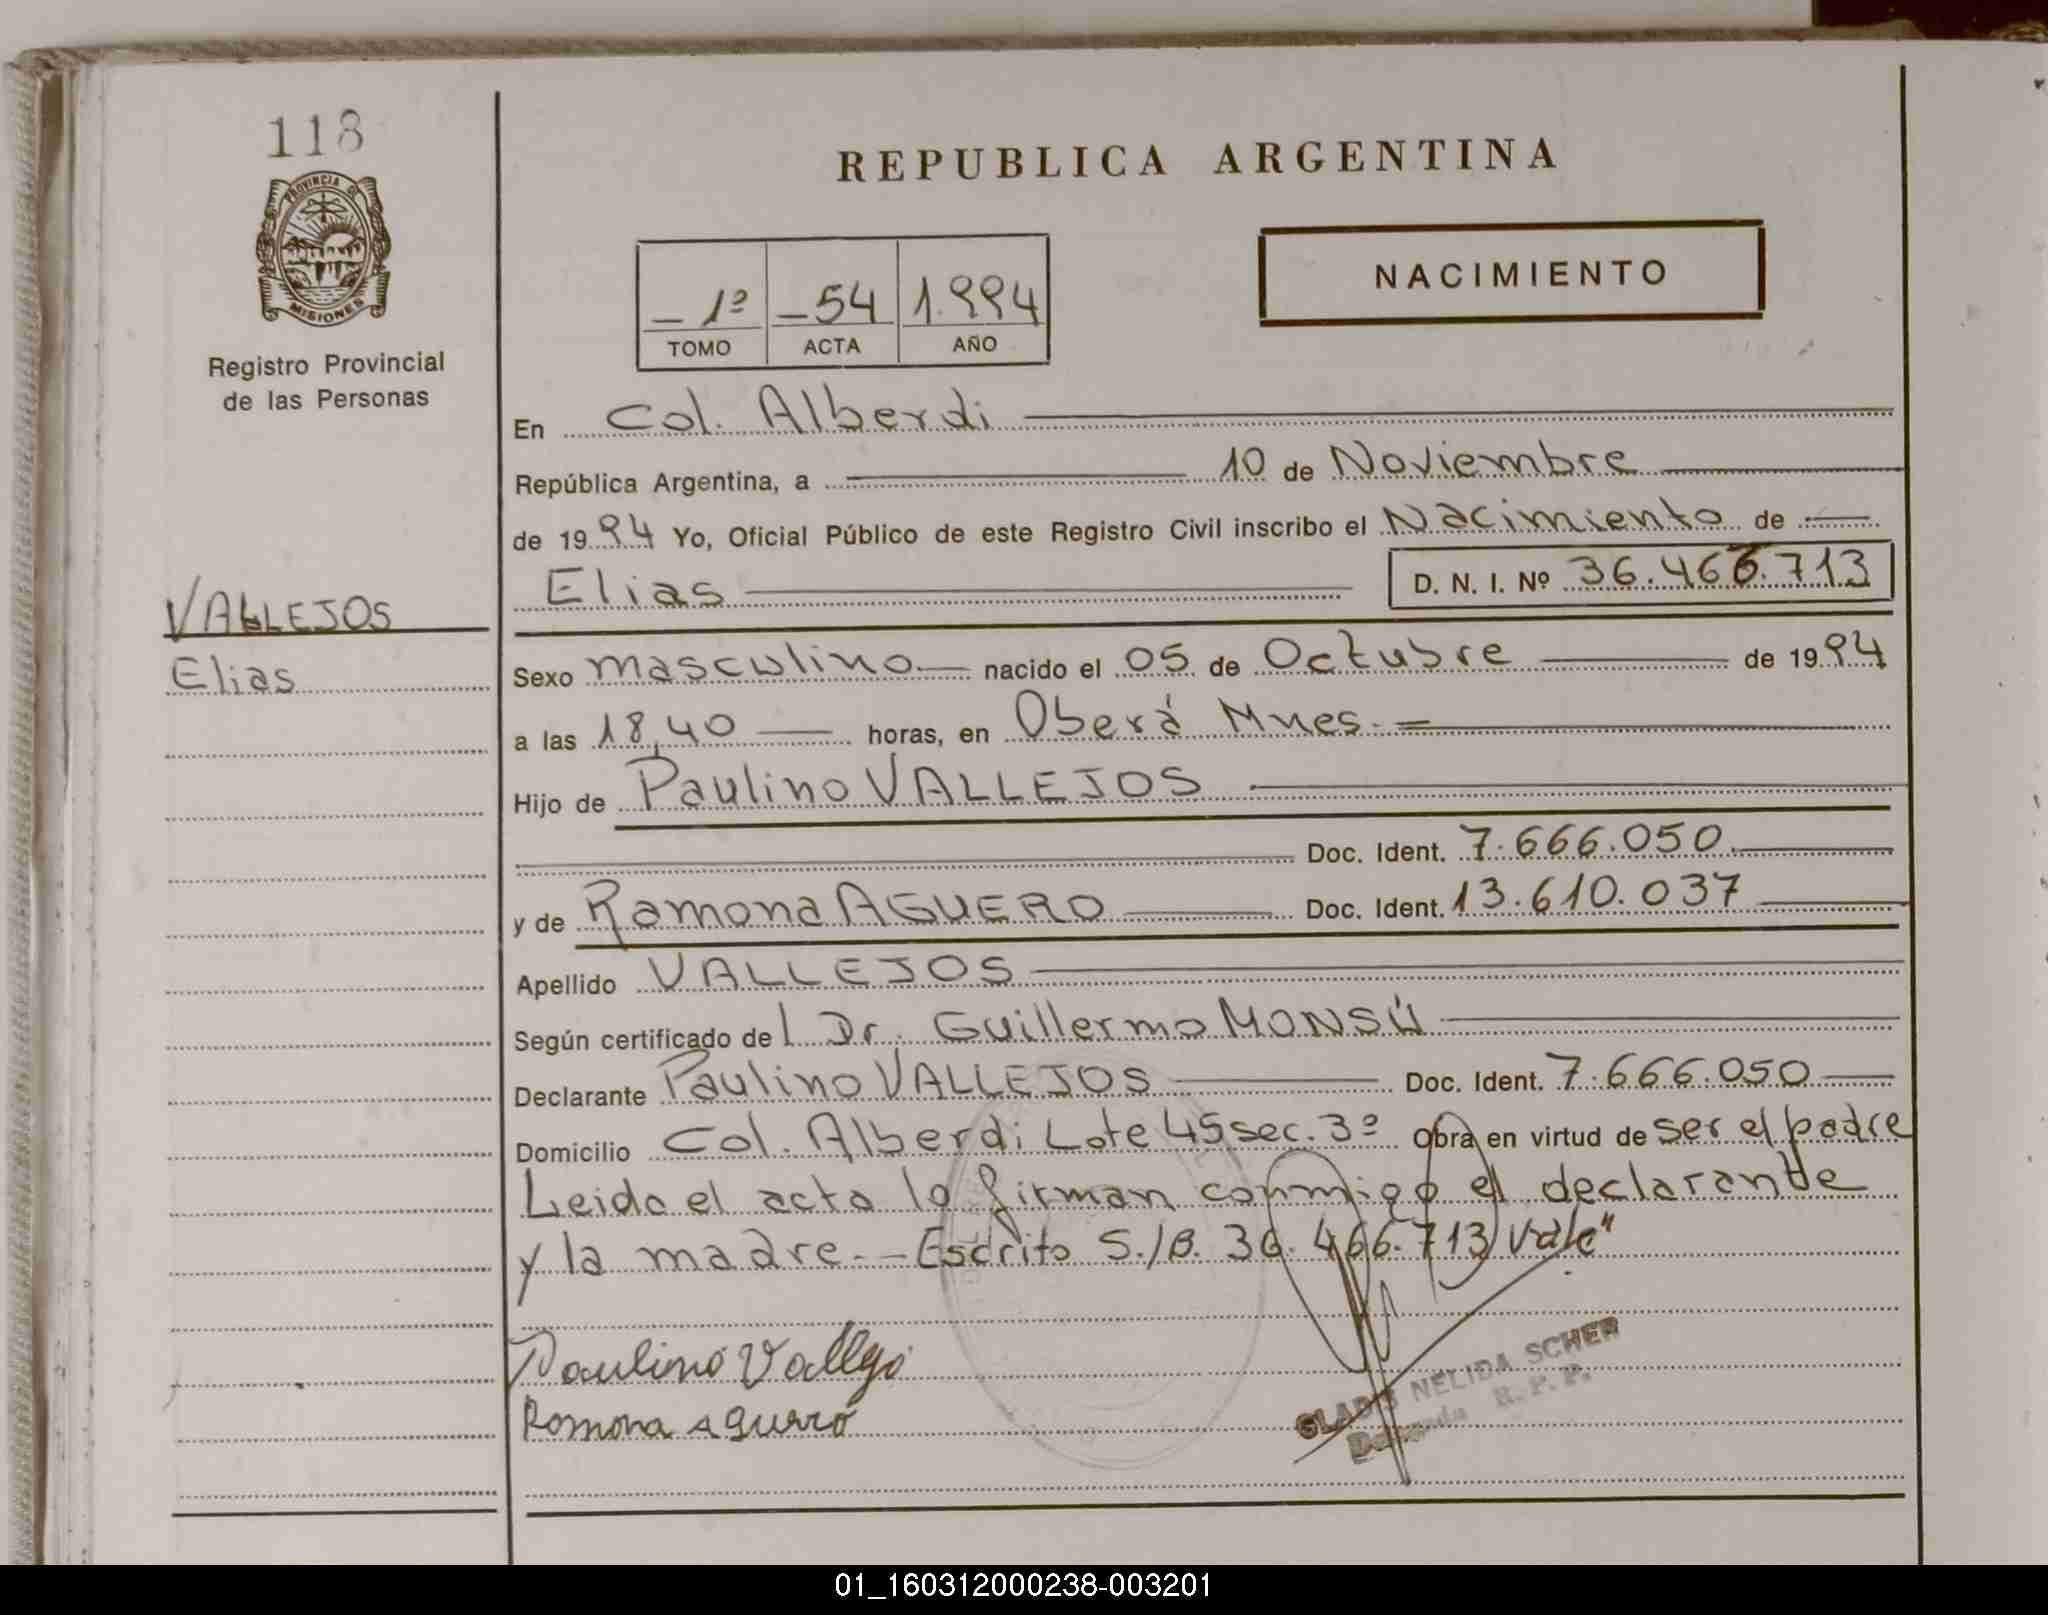 118
PROVINCIA DE
MISIONES
Registro Provincial
de las Personas
VALLEJOS
Elias
REPUBLICA ARGENTINA
NACIMIENTO
1º 54 1.994
TOMO ACTA AÑO
En Col. Alberdi
República Argentina, a 10 de Noviembre
de 1994 Yo, Oficial Público de este Registro Civil inscribo el Nacimiento de
Elias D. N. I. Nº 36.466.713
Sexo masculino nacido el 05 de Octubre de 1994
a las 18,40 horas, en Oberá Mnes.
Hijo de Paulino VALLEJOS
Doc. Ident. 7.666.050
y de Ramona AGUERO Doc. Ident. 13.610.037
Apellido VALLEJOS
Según certificado del Dr. Guillermo MONSÚ
Declarante Paulino VALLEJOS Doc. Ident. 7.666.050
Domicilio Col. Alberdi Lote 45 sec. 3º Obra en virtud de ser el padre
Leida el acta la firman conmigo el declarante
y la madre.- Escrito S./B. 36.466.713 Vale"
Paulino Vallejo
Ramona Aguero
GLADIS NELIDA SCHER
Delegada R. P. P.
01_160312000238-003201